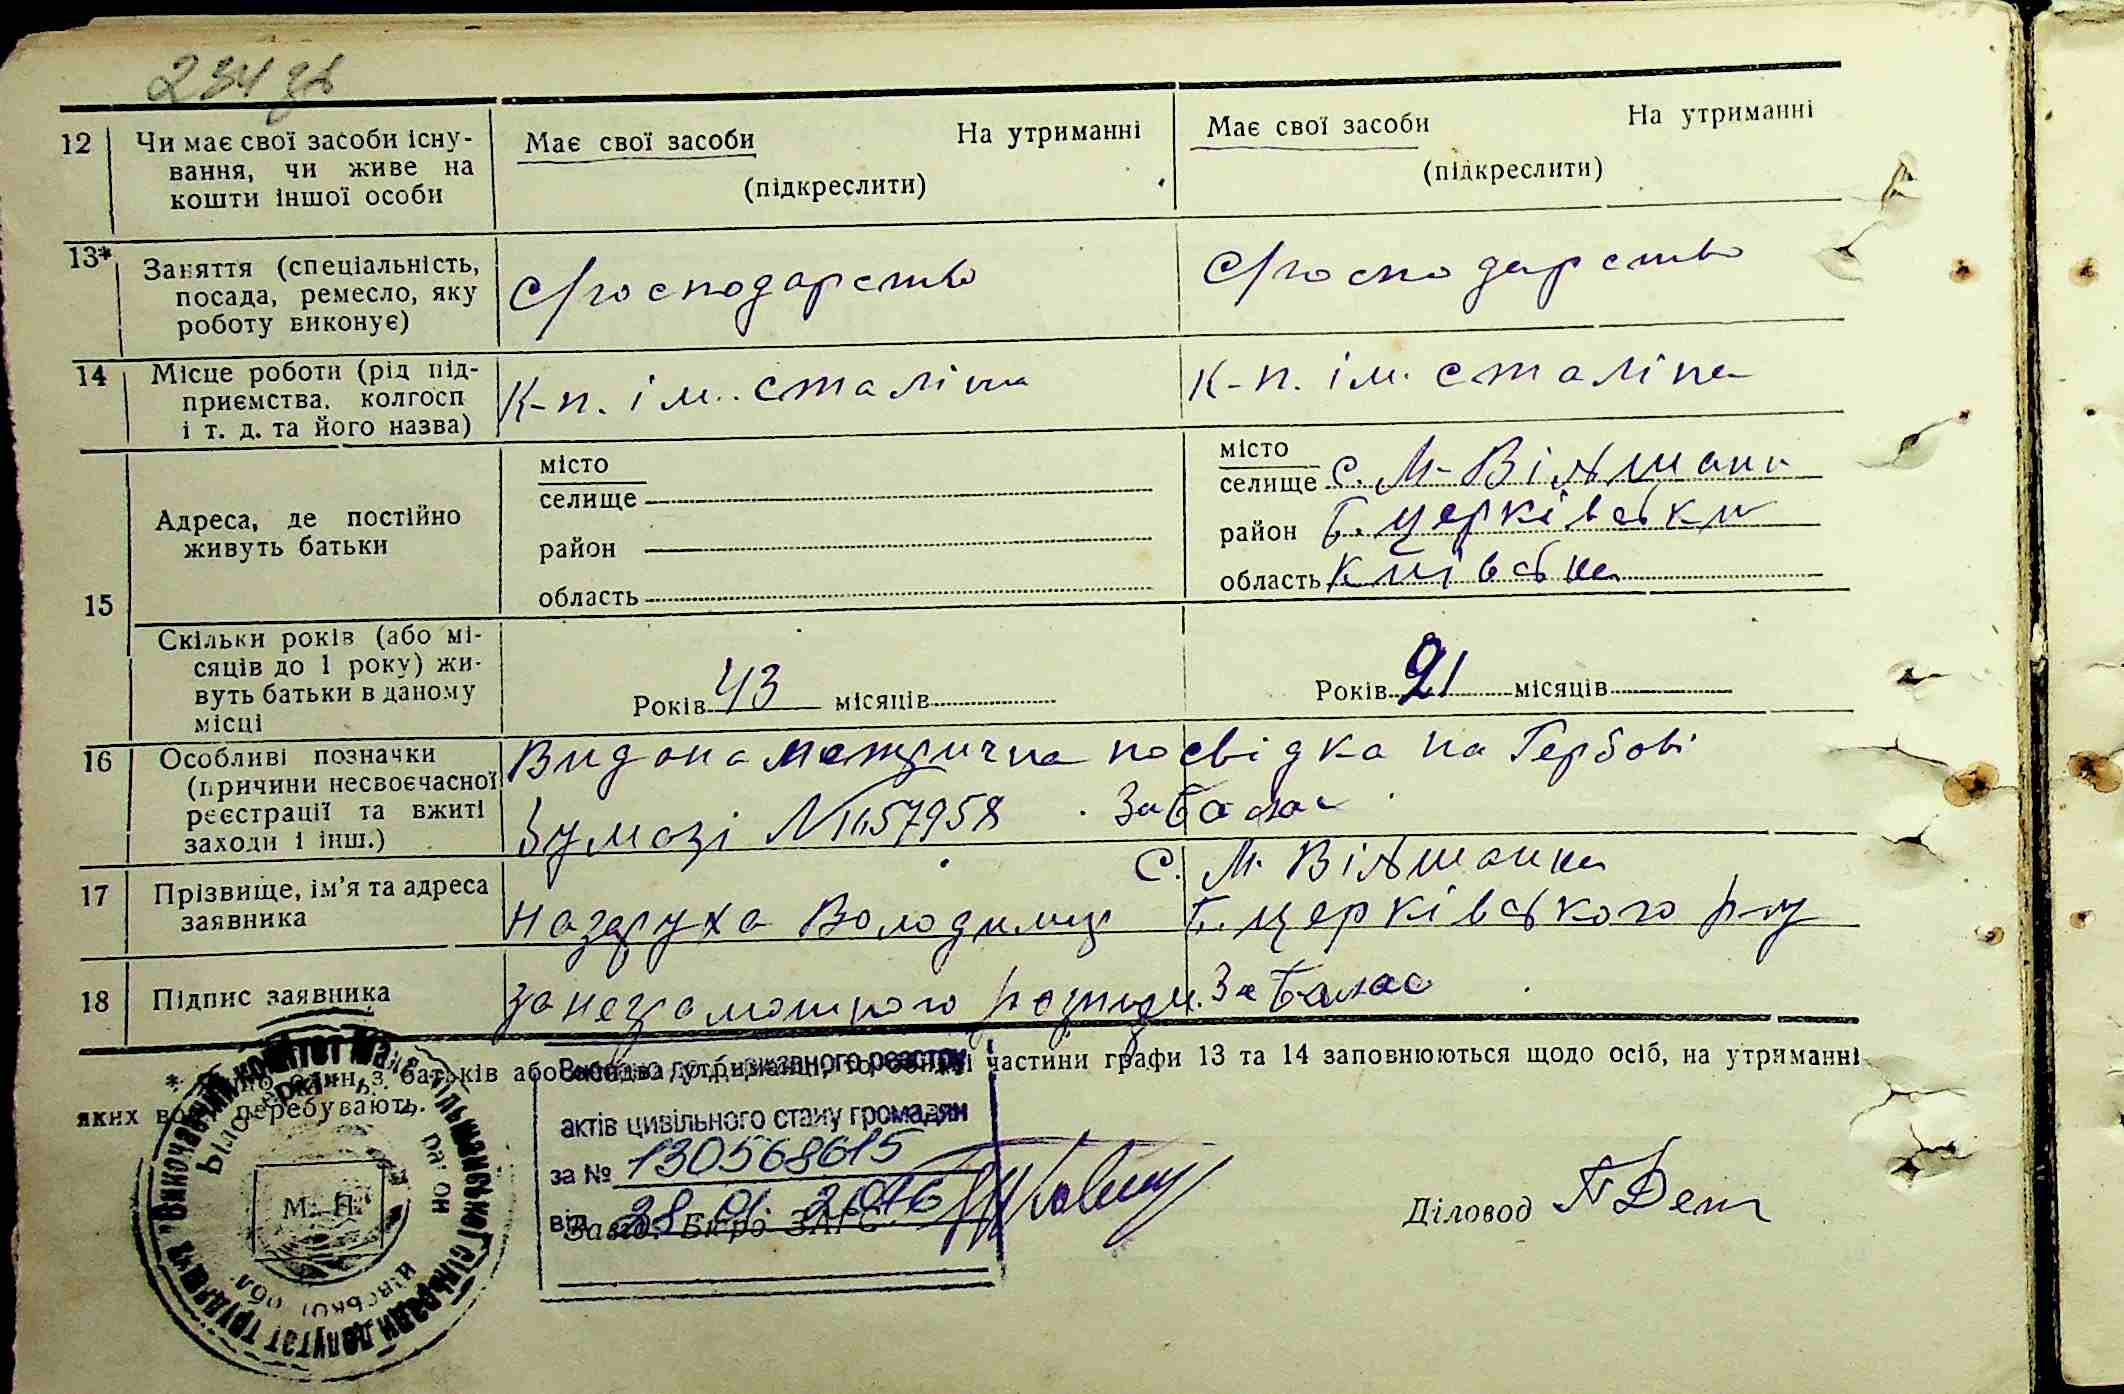 234 зв
12 Чи має свої засоби існу-
вання, чи живе на
кошти іншої особи
Має свої засоби На утриманні
(підкреслити)
Має свої засоби На утриманні
(підкреслити)
13* Заняття (спеціальність,
посада, ремесло, яку
роботу виконує)
С/господарство
С/господарство
14 Місце роботи (рід під-
приємства, колгосп
і т. д. та його назва)
К-п. ім. сталіна
К-п. ім. сталіна
15 Адреса, де постійно
живуть батьки
місто
селище
район
область
місто
селище с. М-Вільшанк
район Б. церківськи
область Київська
Скільки років (або мі-
сяців до 1 року) жи-
вуть батьки в даному
місці
Років 43 місяців
Років 21 місяців
16 Особливі позначки
(причини несвоєчасної
реєстрації та вжиті
заходи і інш.)
Видана метрична посвідка на Гербові
бумазі №1657958
17 Прізвище, ім'я та адреса
заявника
с. М. Вільшанка
Назарука Володимир Б. церківського р-у
18 Підпис заявника
за неграмотного розпис.
* частини графи 13 та 14 заповнюються щодо осіб, на утриманні
яких перебувають.
державного реєстру
актів цивільного стану громадян
за № 130568615
від 28. 01. 2016
Завід. Бюро ЗАГС
М. П.
Діловод